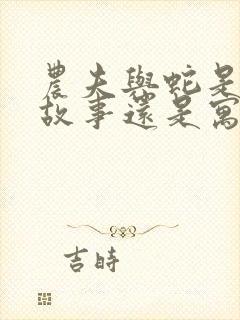 農夫與蛇是
故事還是寓
吉時